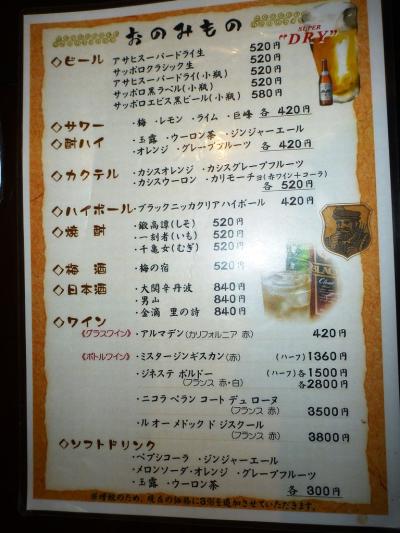 おのみもの
SUPER
"DRY"
◇ビール
アサヒスーパードライ生 520円
サッポロクラシック生 520円
アサヒスーパードライ(小瓶) 520円
サッポロ黒ラベル(小瓶) 520円
サッポロエビス黒ビール(小瓶) 580円
◇サワー ・梅 ・レモン ・ライム ・巨峰 各 420円
◇酎ハイ ・玉露 ・ウーロン茶 ・ジンジャーエール
・オレンジ ・グレープフルーツ 各 420円
◇カクテル ・カシスオレンジ ・カシスグレープフルーツ
・カシスウーロン ・カリモーチョ(赤ワイン+コーラ)
各 520円
◇ハイボール ・ブラックニッカクリアハイボール 420円
◇焼酎 ・鍛高譚(しそ) 520円
・一刻者(いも) 520円
・千亀女(むぎ) 520円
◇梅酒 ・梅の宿 520円
◇日本酒 ・大関辛丹波 840円
・男山 840円
・金滴 里の詩 840円
◇ワイン
《グラスワイン》 ・アルマデン(カリフォルニア 赤) 420円
《ボトルワイン》 ・ミスタージンギスカン(赤) (ハーフ) 1360円
・ジネステ ボルドー (ハーフ)各1500円
(フランス 赤・白) 各2800円
・ニコラ ペラン コート デュ ローヌ
(フランス 赤) 3500円
・ル オー メドック ド ジスクール
(フランス 赤) 3800円
◇ソフトドリンク
・ペプシコーラ ・ジンジャーエール
・メロンソーダ・オレンジ ・グレープフルーツ
・玉露 ・ウーロン茶 各 300円